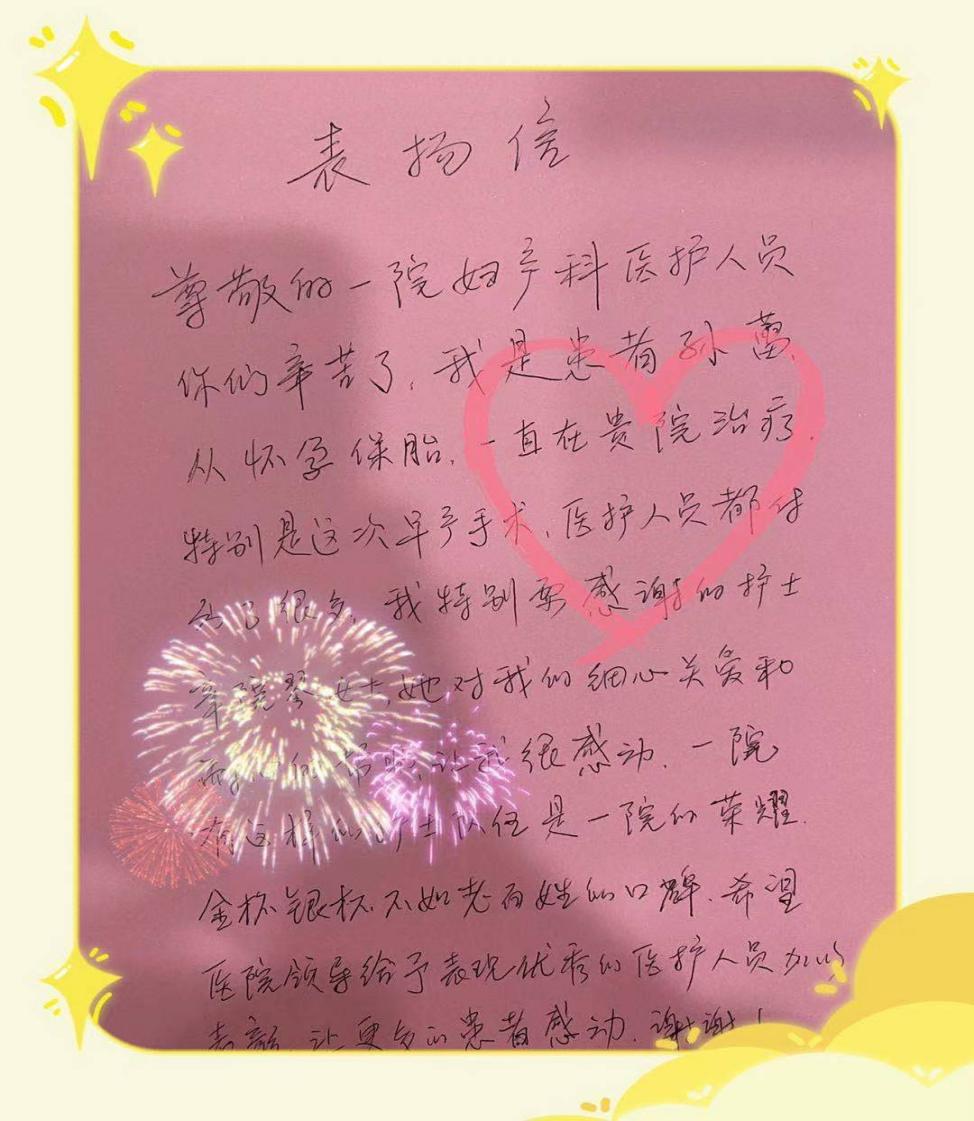 表扬信
尊敬的一院妇产科医护人员
你们辛苦了，我是患者孙蕾，
从怀孕保胎，一直在贵院治疗，
特别是这次早产手术，医护人员都付
出了很多，我特别要感谢的护士
章院琴女士，她对我的细心关爱和
让我很感动，一院
有这样的护士队伍是一院的荣耀，
金杯银杯不如老百姓的口碑，希望
医院领导给予表现优秀的医护人员加以
表彰，让更多的患者感动，谢谢！